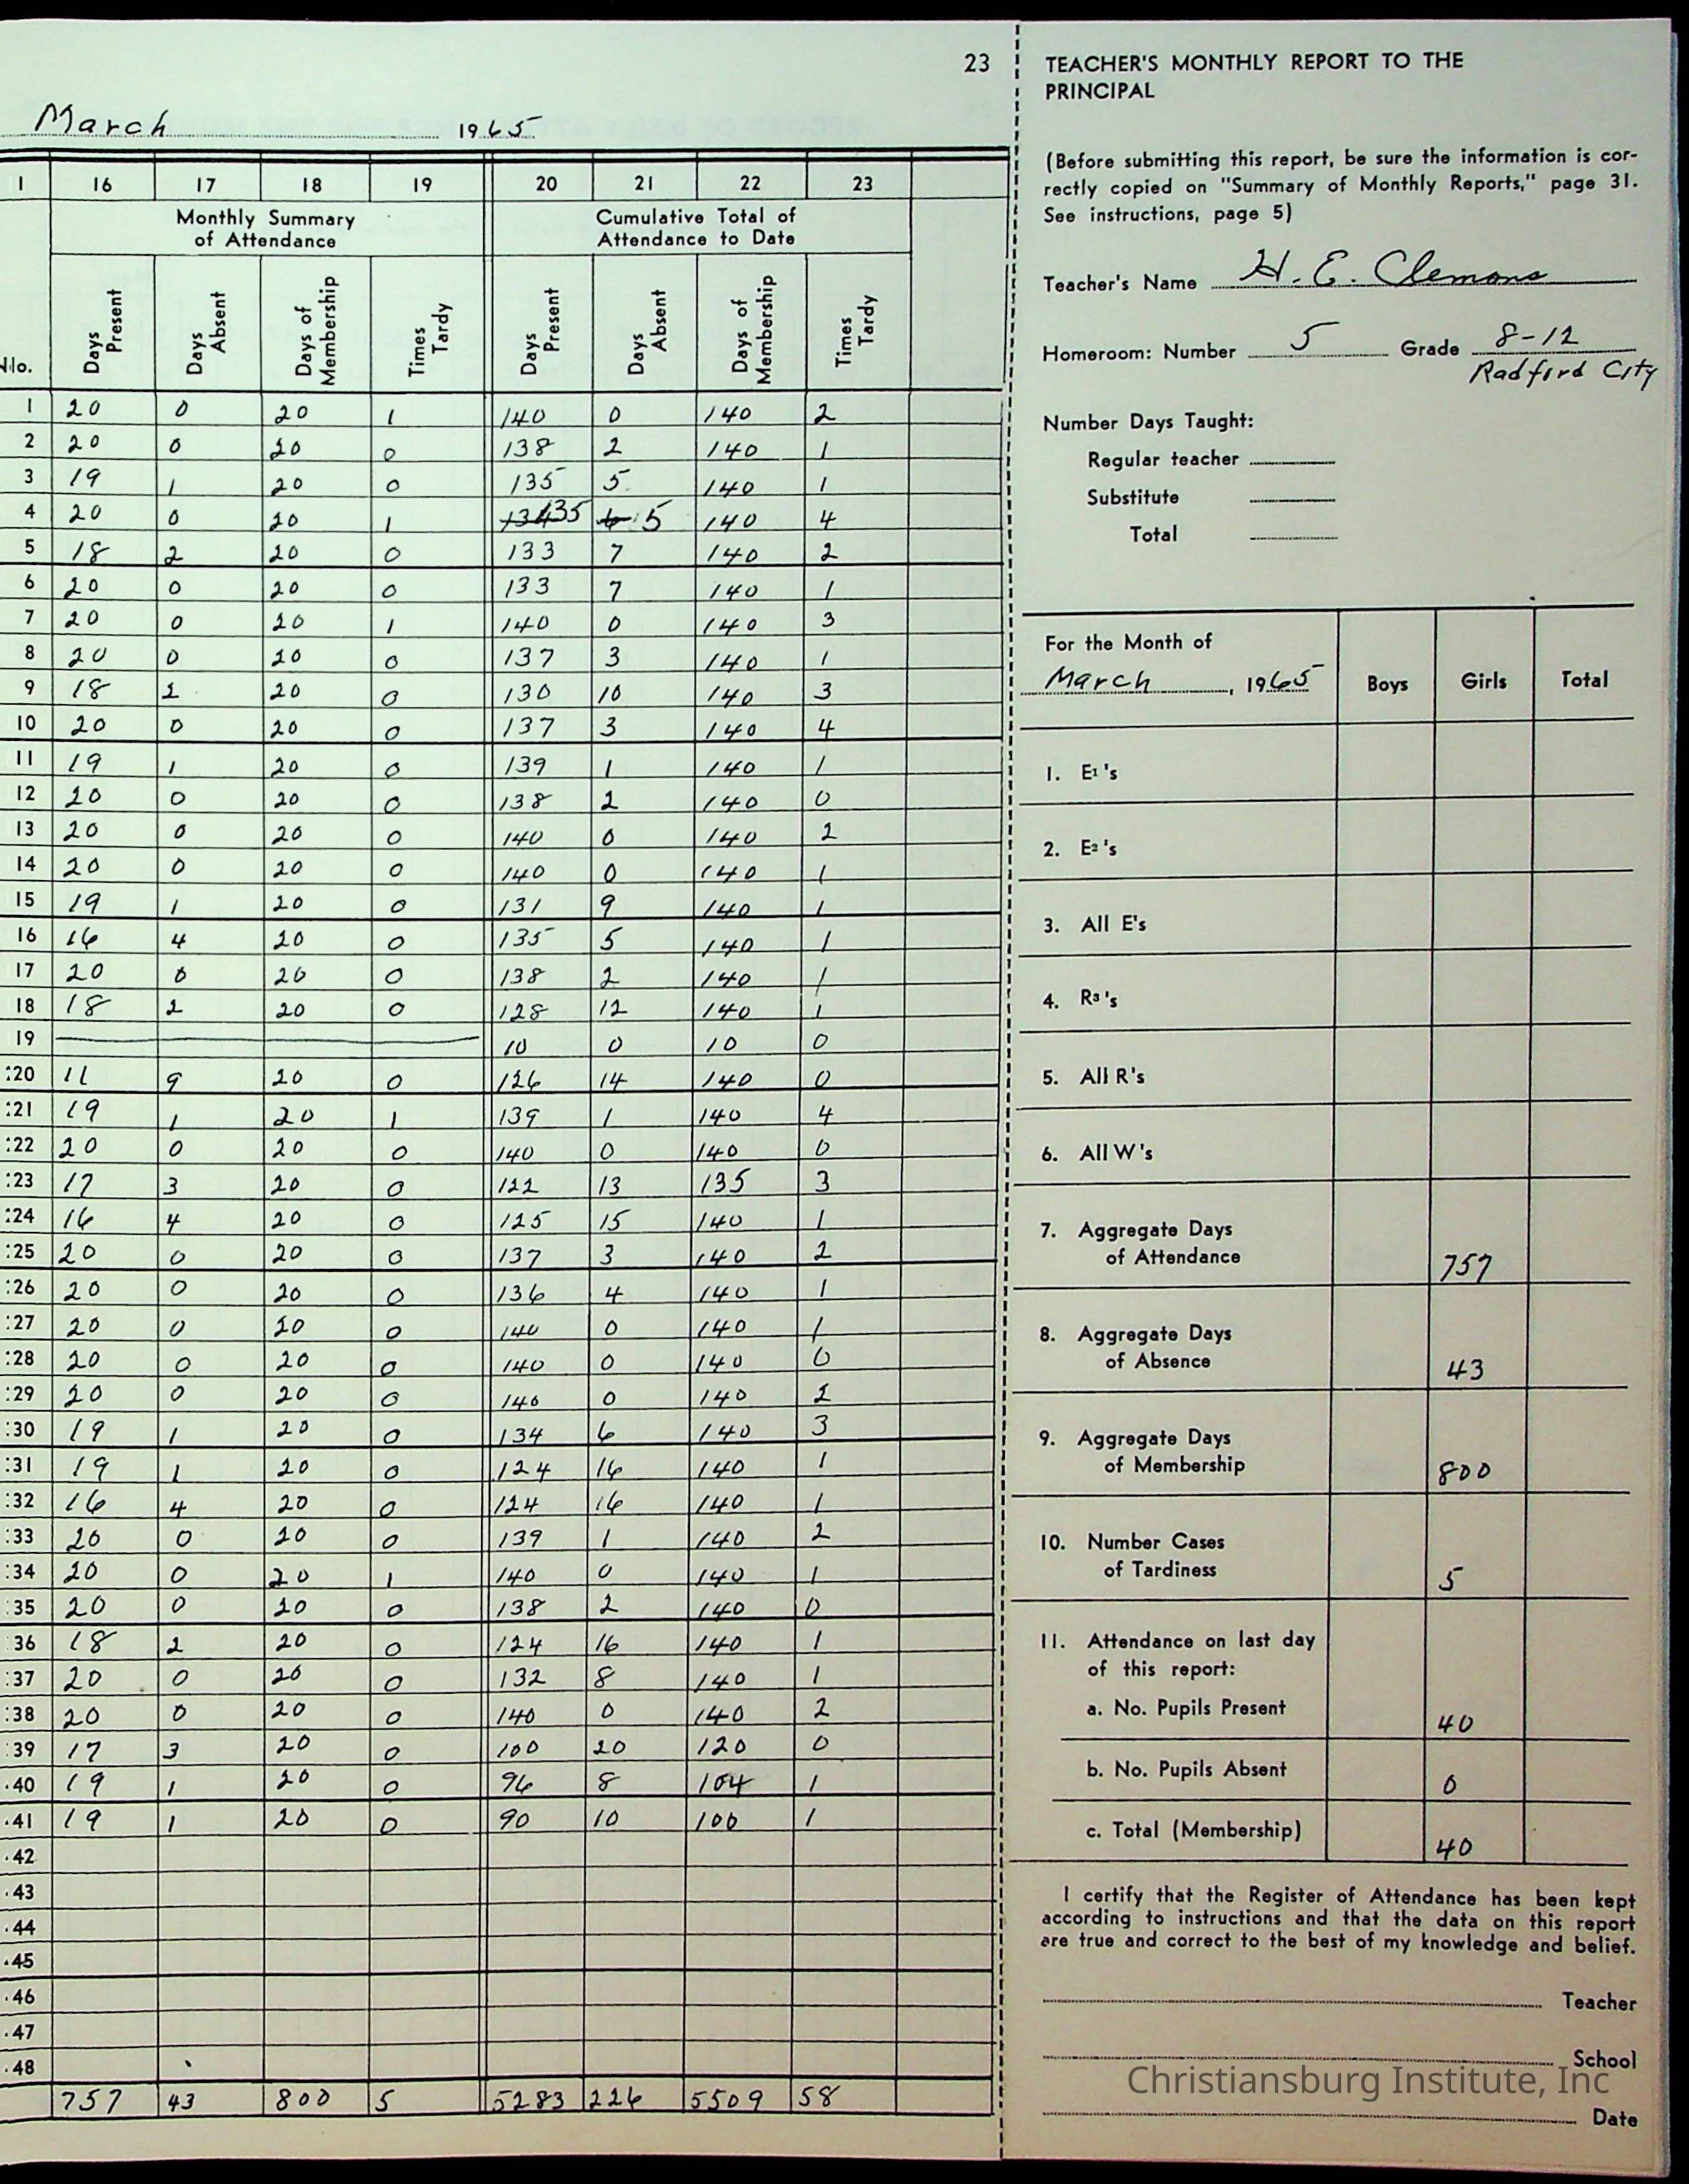 23
March 1965
1 16 17 18 19 20 21 22 23
Monthly Summary of Attendance Cumulative Total of Attendance to Date
No. Days Present Days Absent Days of Membership Times Tardy Days Present Days Absent Days of Membership Times Tardy
1 20 0 20 1 140 0 140 2
2 20 0 20 0 138 2 140 1
3 19 1 20 0 135 5 140 1
4 20 0 20 1 134 135 6 5 140 4
5 18 2 20 0 133 7 140 2
6 20 0 20 0 133 7 140 1
7 20 0 20 1 140 0 140 3
8 20 0 20 0 137 3 140 1
9 18 2 20 0 130 10 140 3
10 20 0 20 0 137 3 140 4
11 19 1 20 0 139 1 140 1
12 20 0 20 0 138 2 140 0
13 20 0 20 0 140 0 140 2
14 20 0 20 0 140 0 140 1
15 19 1 20 0 131 9 140 1
16 16 4 20 0 135 5 140 1
17 20 0 20 0 138 2 140 1
18 18 2 20 0 128 12 140 1
19 10 0 10 0
20 11 9 20 0 126 14 140 0
21 19 1 20 1 139 1 140 4
22 20 0 20 0 140 0 140 0
23 17 3 20 0 122 13 135 3
24 16 4 20 0 125 15 140 1
25 20 0 20 0 137 3 140 2
26 20 0 20 0 136 4 140 1
27 20 0 20 0 140 0 140 1
28 20 0 20 0 140 0 140 0
29 20 0 20 0 140 0 140 2
30 19 1 20 0 134 6 140 3
31 19 1 20 0 124 16 140 1
32 16 4 20 0 124 16 140 1
33 20 0 20 0 139 1 140 2
34 20 0 20 1 140 0 140 1
35 20 0 20 0 138 2 140 0
36 18 2 20 0 124 16 140 1
37 20 0 20 0 132 8 140 1
38 20 0 20 0 140 0 140 2
39 17 3 20 0 100 20 120 0
40 19 1 20 0 96 8 104 1
41 19 1 20 0 90 10 100 1
42
43
44
45
46
47
48
757 43 800 5 5283 226 5509 58
TEACHER'S MONTHLY REPORT TO THE
PRINCIPAL
(Before submitting this report, be sure the information is cor-
rectly copied on "Summary of Monthly Reports," page 31.
See instructions, page 5)
Teacher's Name H. E. Clemons
Homeroom: Number 5 Grade 8-12
Radford City
Number Days Taught:
Regular teacher
Substitute
Total
For the Month of
March, 1965 Boys Girls Total
1. E1's
2. E2's
3. All E's
4. R3's
5. All R's
6. All W's
7. Aggregate Days
of Attendance 757
8. Aggregate Days
of Absence 43
9. Aggregate Days
of Membership 800
10. Number Cases
of Tardiness 5
11. Attendance on last day
of this report:
a. No. Pupils Present 40
b. No. Pupils Absent 0
c. Total (Membership) 40
I certify that the Register of Attendance has been kept
according to instructions and that the data on this report
are true and correct to the best of my knowledge and belief.
Teacher
School
Christiansburg Institute, Inc
Date